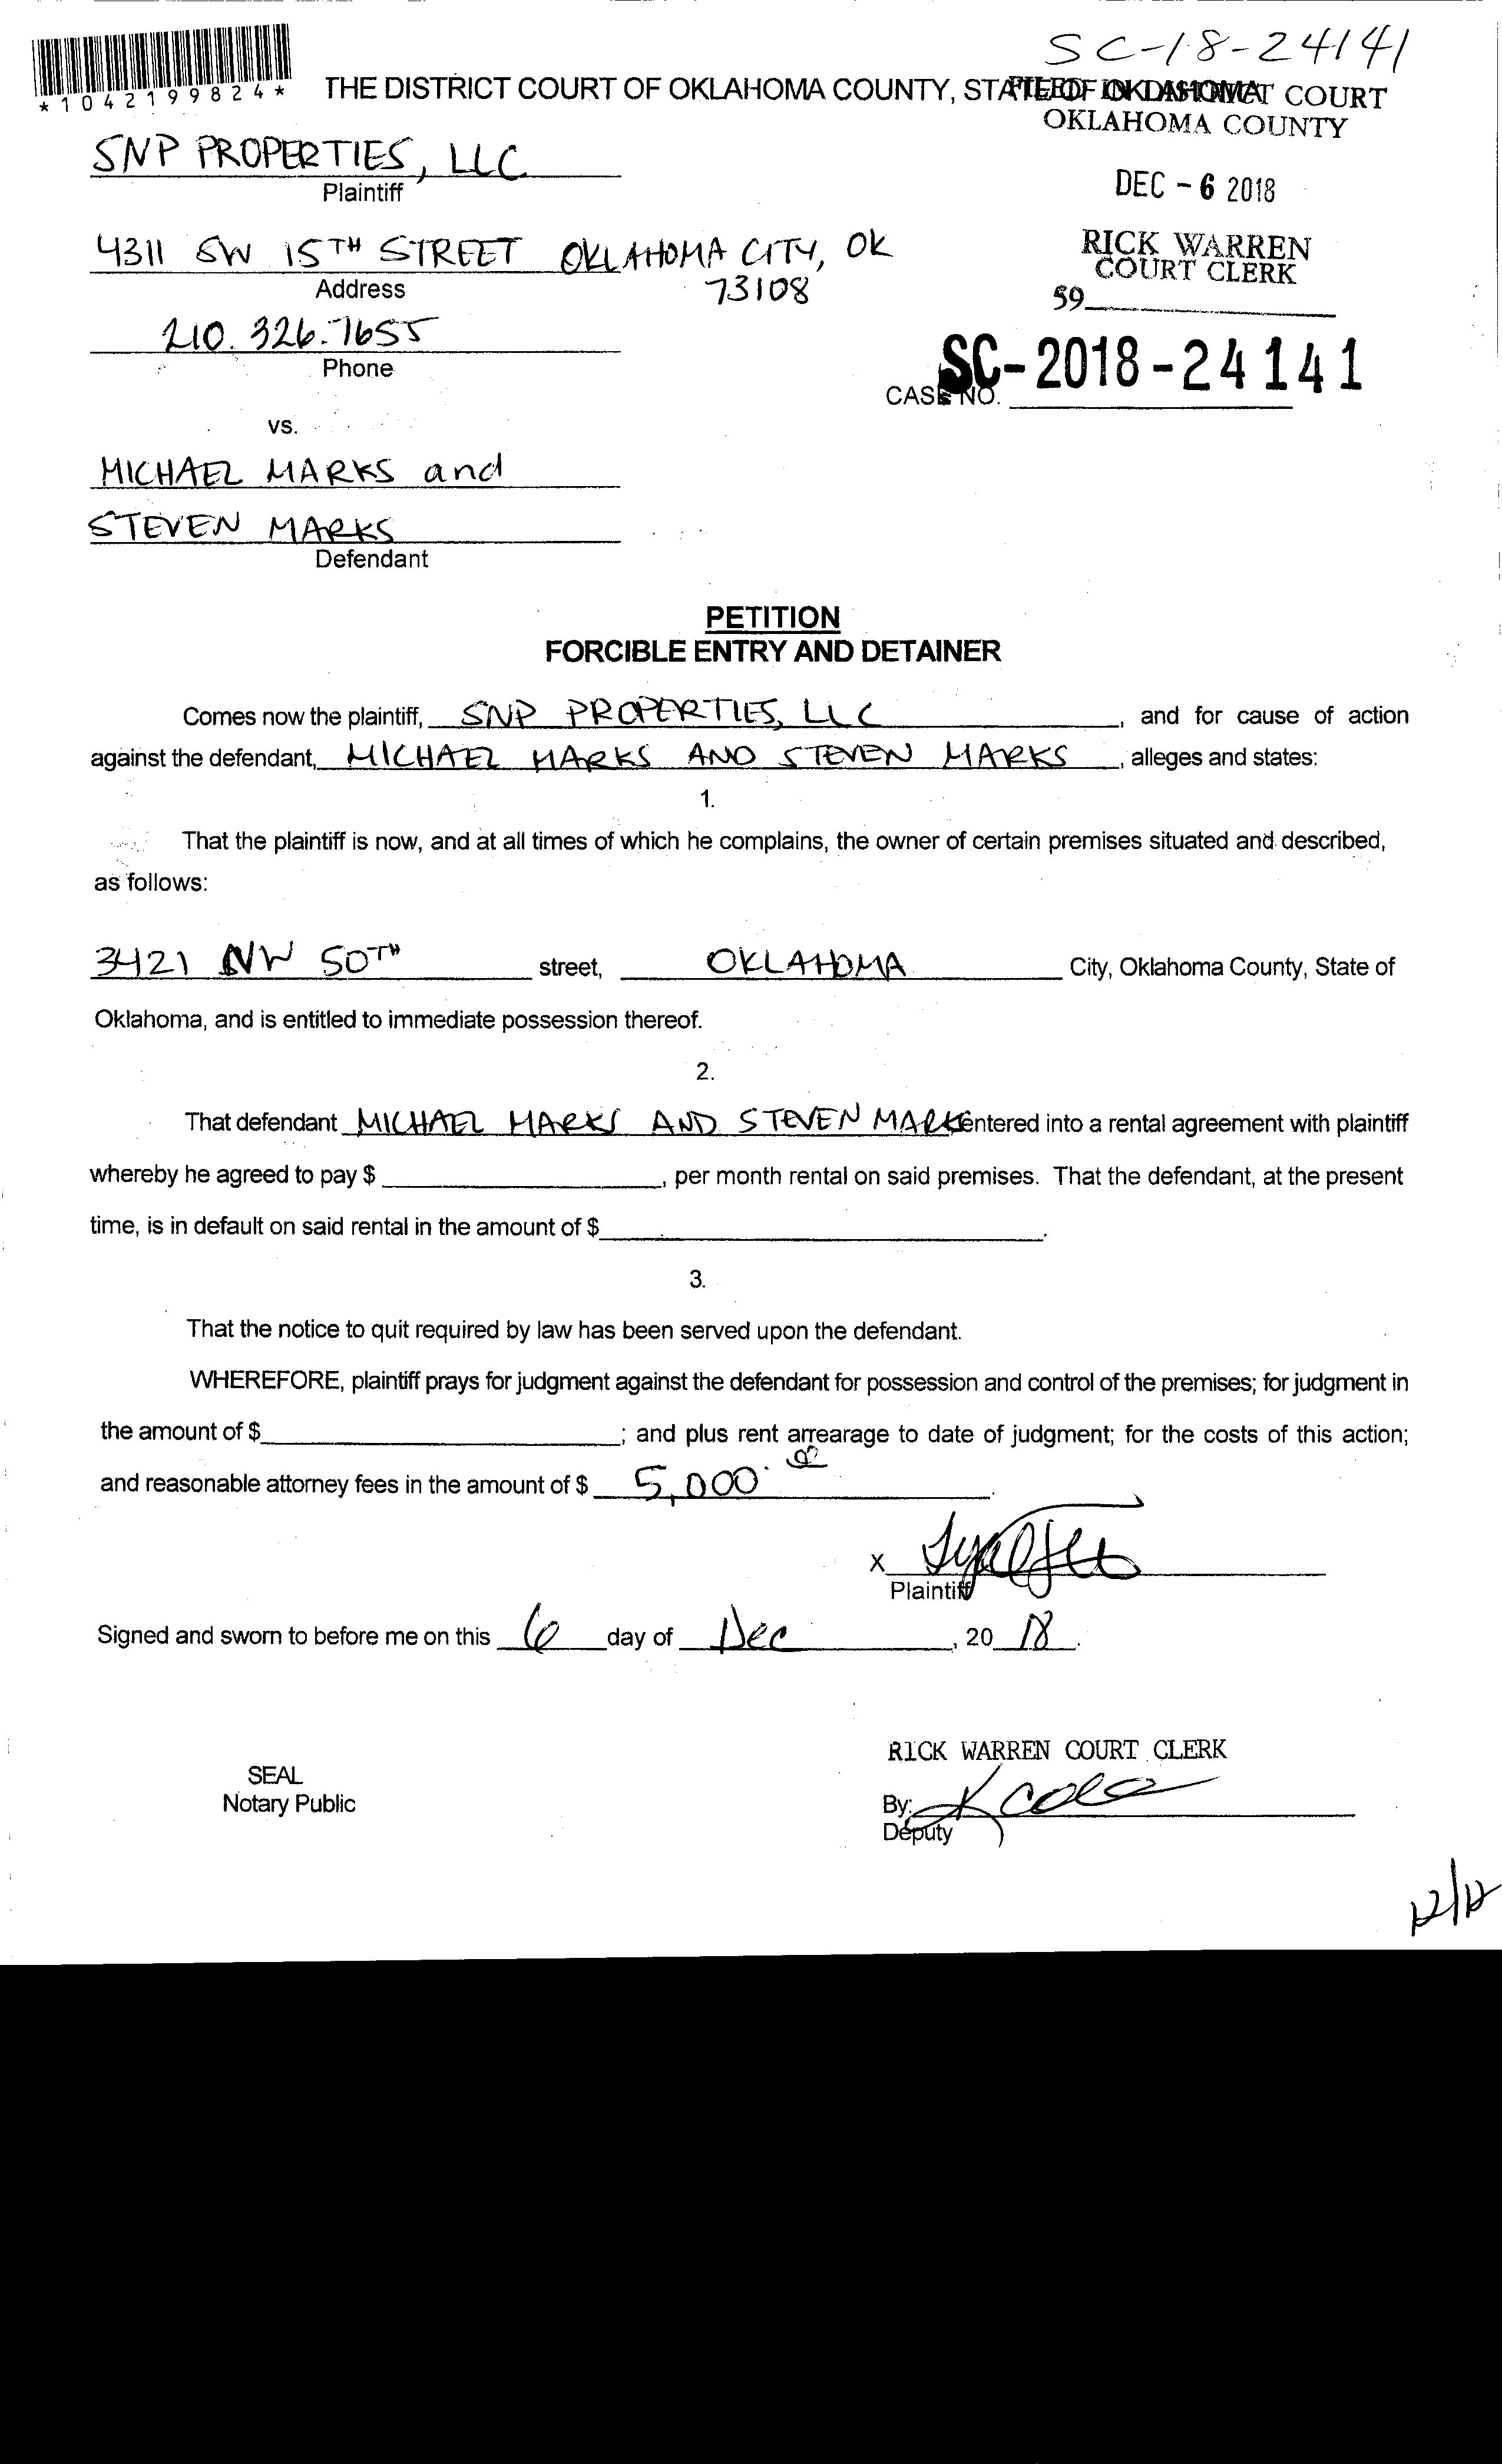 SC-18-24141
*1042199824*
THE DISTRICT COURT OF OKLAHOMA COUNTY, STATE OF OKLAHOMA
FILED IN DISTRICT COURT
OKLAHOMA COUNTY
SNP PROPERTIES, LLC
Plaintiff
DEC - 6 2018
4311 SW 15TH STREET OKLAHOMA CITY, OK
73108
Address
RICK WARREN
COURT CLERK
59
210.326.7655
Phone
CASE NO. SC-2018-24141
vs.
MICHAEL MARKS and
STEVEN MARKS
Defendant
PETITION
FORCIBLE ENTRY AND DETAINER
Comes now the plaintiff, SNP PROPERTIES, LLC, and for cause of action
against the defendant, MICHAEL MARKS AND STEVEN MARKS, alleges and states:
1.
That the plaintiff is now, and at all times of which he complains, the owner of certain premises situated and described,
as follows:
3421 NW 50TH street, OKLAHOMA City, Oklahoma County, State of
Oklahoma, and is entitled to immediate possession thereof.
2.
That defendant MICHAEL MARKS AND STEVEN MARKS entered into a rental agreement with plaintiff
whereby he agreed to pay $, per month rental on said premises. That the defendant, at the present
time, is in default on said rental in the amount of $.
3.
That the notice to quit required by law has been served upon the defendant.
WHEREFORE, plaintiff prays for judgment against the defendant for possession and control of the premises; for judgment in
the amount of $; and plus rent arrearage to date of judgment; for the costs of this action;
and reasonable attorney fees in the amount of $ 5,000.00.
x
Plaintiff
Signed and sworn to before me on this 6 day of Dec, 2018.
RICK WARREN COURT CLERK
SEAL
Notary Public
By: K Cole
Deputy
12/12